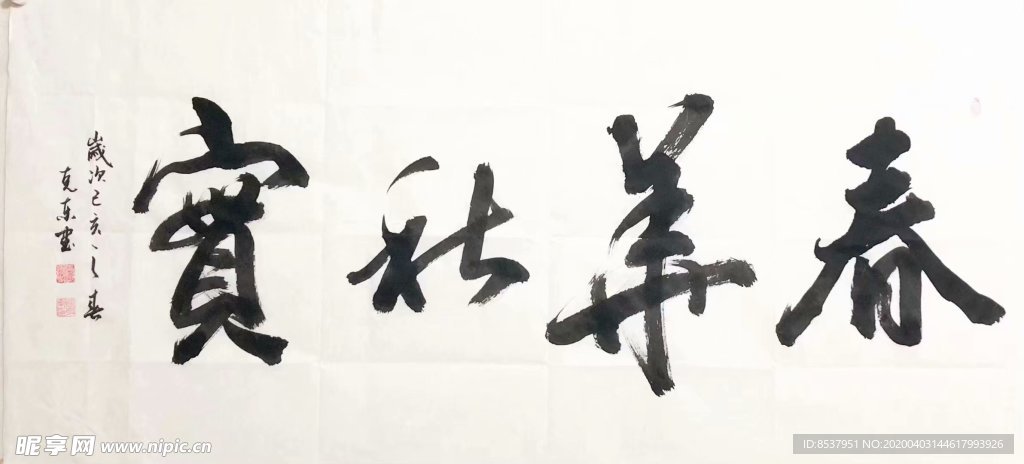 春華秋實
歲次己亥之春
克東書
昵享网 www.nipic.cn
ID:8537951 NO:20200403144617993926